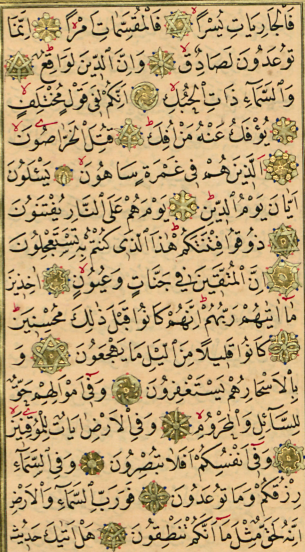 فَالْجَارِيَاتِ يُسْرًا فَالْمُقَسِّمَاتِ اَمْرًا اِنَّمَا
تُوعَدُونَ لَصَادِقٌ وَاِنَّ الدّٖينَ لَوَاقِعٌ
وَالسَّمَٓاءِ ذَاتِ الْحُبُكِ اِنَّكُمْ لَفٖي قَوْلٍ مُخْتَلِفٍ
يُؤْفَكُ عَنْهُ مَنْ اُفِكَ قُتِلَ الْخَرَّاصُونَ
اَلَّذٖينَ هُمْ فٖي غَمْرَةٍ سَاهُونَ يَسْـَٔلُونَ
اَيَّانَ يَوْمُ الدّٖينِ يَوْمَ هُمْ عَلَى النَّارِ يُفْتَنُونَ
ذُوقُوا فِتْنَتَكُمْ هٰذَا الَّذٖي كُنْتُمْ بِهٖ تَسْتَعْجِلُونَ
اِنَّ الْمُتَّقٖينَ فٖي جَنَّاتٍ وَعُيُونٍ اٰخِذٖينَ
مَٓا اٰتٰيهُمْ رَبُّهُمْ اِنَّهُمْ كَانُوا قَبْلَ ذٰلِكَ مُحْسِنٖينَ
كَانُوا قَلٖيلًا مِنَ الَّيْلِ مَا يَهْجَعُونَ وَ
بِالْاَسْحَارِ هُمْ يَسْتَغْفِرُونَ وَفٖٓي اَمْوَالِهِمْ حَقٌّ
لِلسَّٓائِلِ وَالْمَحْرُومِ وَفِي الْاَرْضِ اٰيَاتٌ لِلْمُوقِنٖينَ
وَفٖٓي اَنْفُسِكُمْ اَفَلَا تُبْصِرُونَ وَفِي السَّمَٓاءِ
رِزْقُكُمْ وَمَا تُوعَدُونَ فَوَرَبِّ السَّمَٓاءِ وَالْاَرْضِ
اِنَّهُ لَحَقٌّ مِثْلَ مَٓا اَنَّكُمْ تَنْطِقُونَ هَلْ اَتٰيكَ حَدٖيثُ